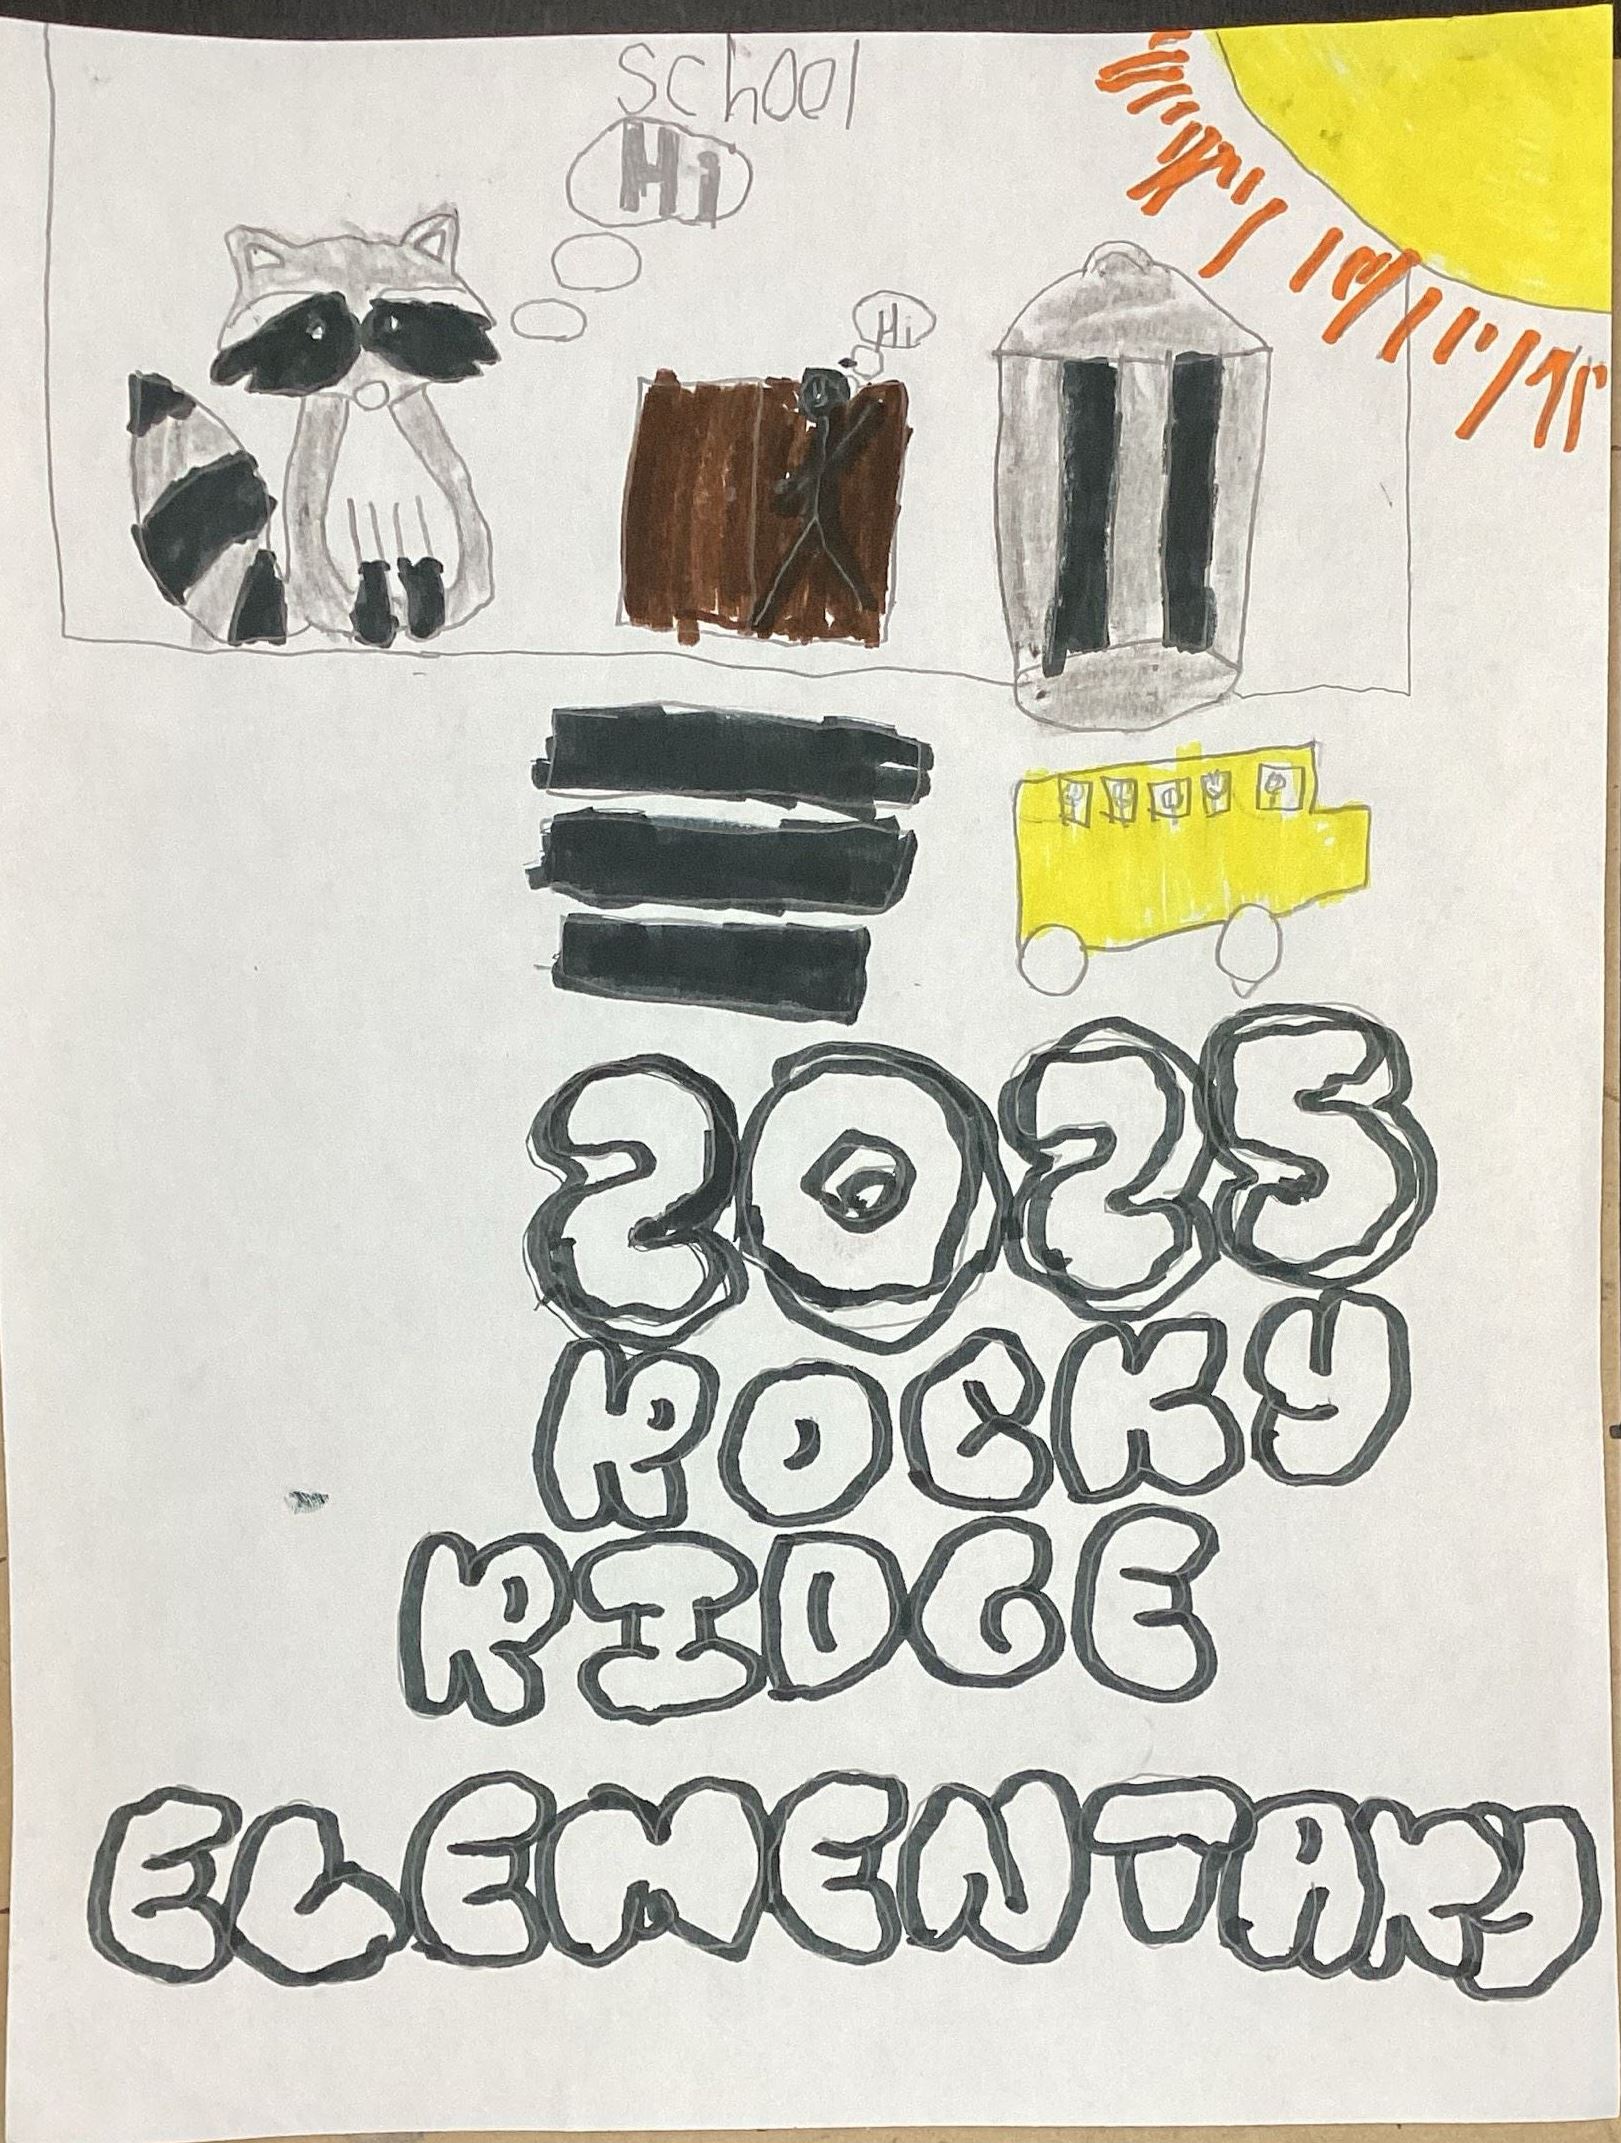 school
Hi
Hi
2025
ROCKY
RIDGE
ELEMENTARY